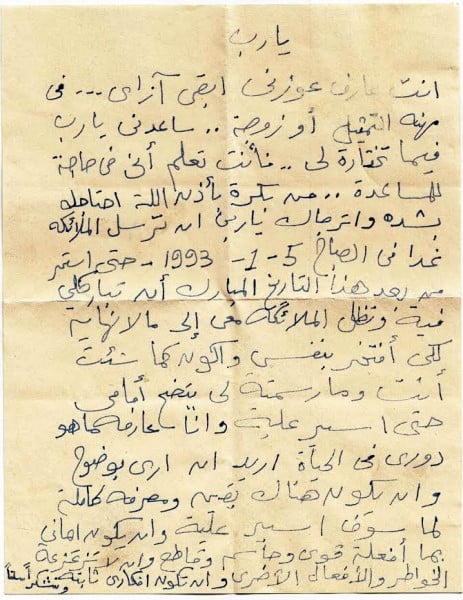 يارب
انت عارف عوزنى ابقى آزاى ... فى
مهنة التمثيل أو زوجة .. ساعدنى يارب
فيما تختارة لى .. فأنت تعلم أنى فى حاجة
للمساعدة .. من بكرة بأذن اللة احتاجلها
بشده واترجاك يارب ان ترسل الملائكه
غدا فى الصباح 5-1-1993 - حتى استمر
من بعد هذا التاريخ المبارك أن تباركلي
فية وتظل الملائكه معى إلى مالانهاية
لكى أفتخر بنفسى واكون كما شئت
أنت وما رسمتة لى يتضح أمامى
حتى اسير علية وانا عارفه كما هو
دورى فى الحياة اريد ان ارى بوضوح
وان يكون هناك يقين ومعرفه كاملة
لما سوف اسير علية وان يكون ايمانى
بما أفعلة قوى وحاسم وقاطع وان لا تزعزعة
الخواطر والأفعال الأخرى وان تكون افكارى ثابتة وتشكر